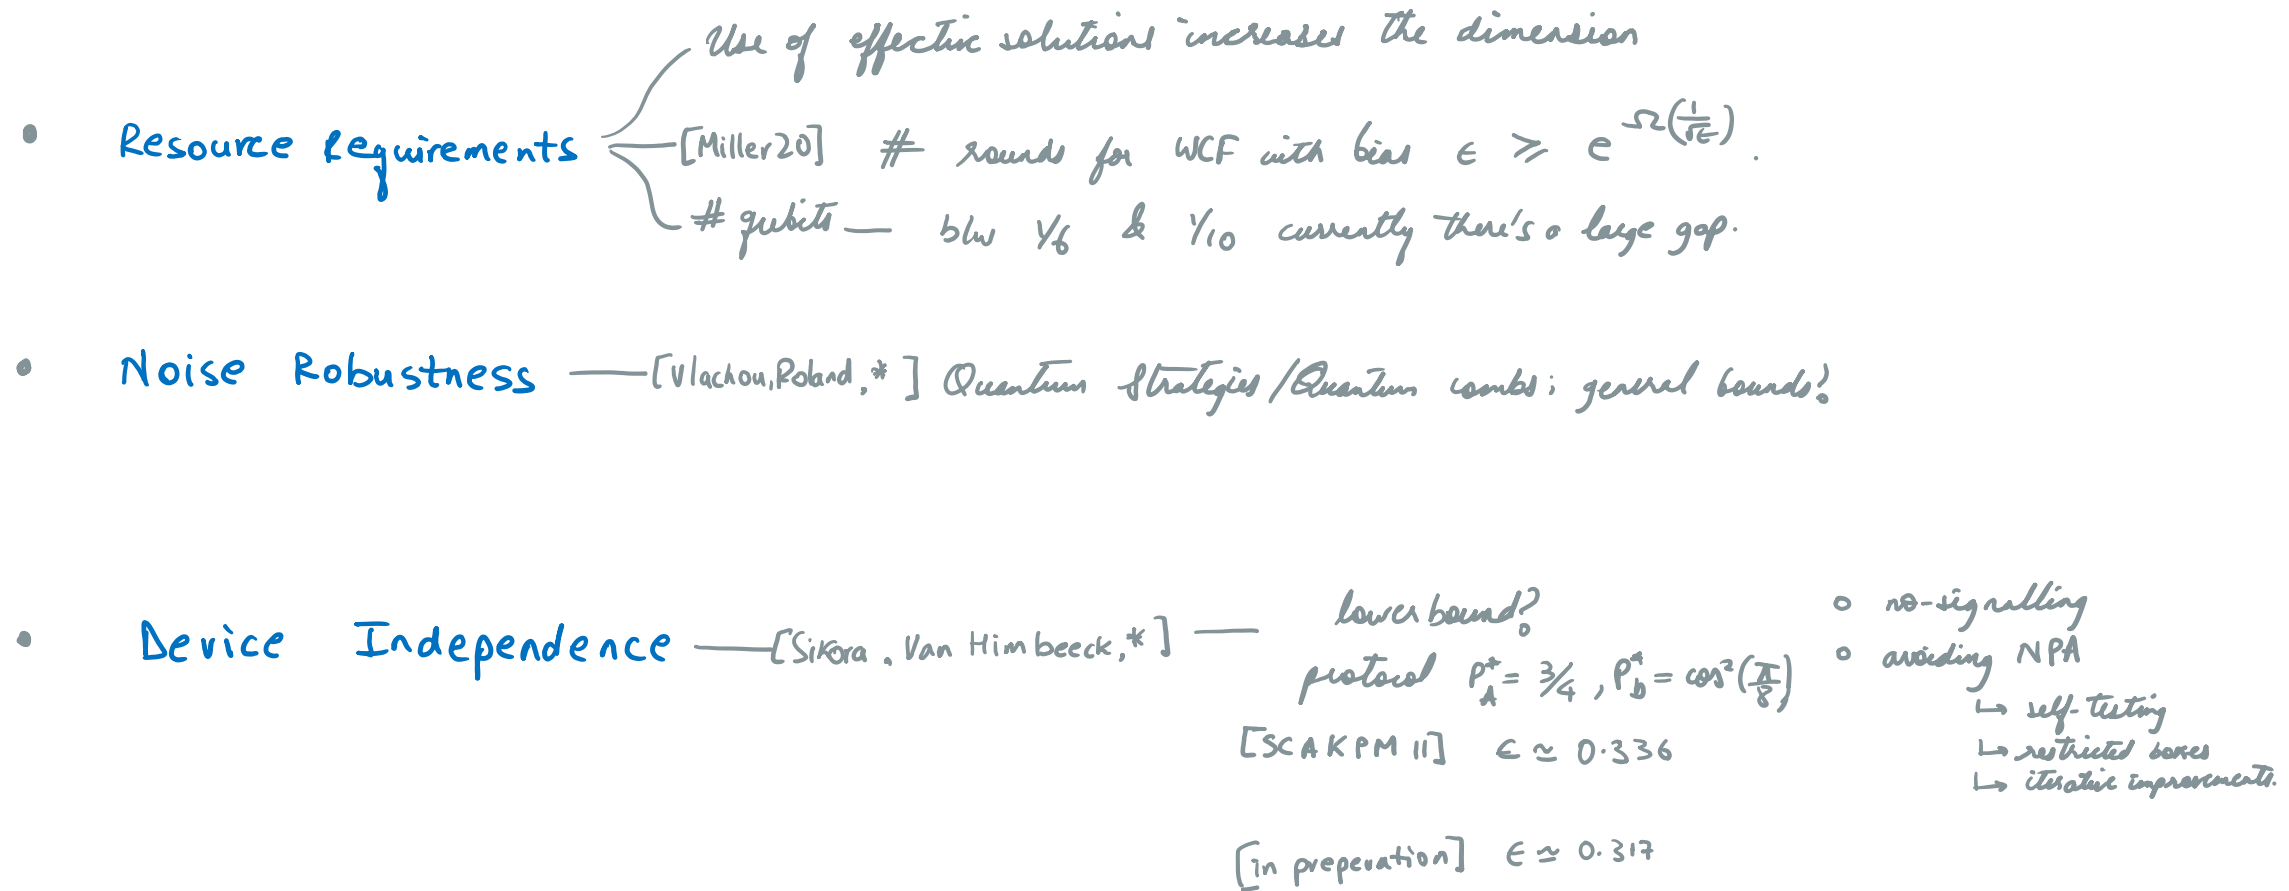 Use of effective solutions increases the dimension
• Resource Requirements
[Miller20] # rounds for WCF with bias ϵ ⩾ e^Ω(1/√ϵ).
# qubits — b/w 1/6 & 1/10 currently there's a large gap.
• Noise Robustness — [Vlachou, Roland, *] Quantum Strategies/Quantum combs; general bounds?
• Device Independence — [Sikora, Van Himbeeck, *] —
lower bound?
protocol P*_A = 3/4, P*_b = cos²(π/8)
[SCAKPM 11] ϵ ≃ 0.336
[in preperation] ϵ ≃ 0.317
o no-signalling
o avoiding NPA
↳ self-testing
↳ restricted boxes
↳ iterative improvements.